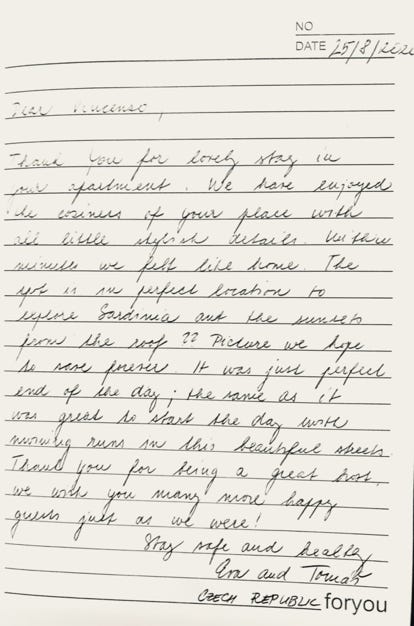 NO
DATE 25/8/202
Dear Vincenso,
Thank you for lovely stay in
your apartment. We have enjoyed
the coziness of your place with
all little stylish details. Within
minutes we felt like home. The
spot is in perfect location to
explore Sardinia and the sunsets
from the roof ?? Picture we hope
to save forever. It was just perfect
end of the day; the same as it
was great to start the day with
morning runs in this beautiful streets.
Thank you for being a great host,
we wish you many more happy
guests just as we were!
Stay safe and healthy
Eva and Tomáš
CZECH REPUBLIC foryou